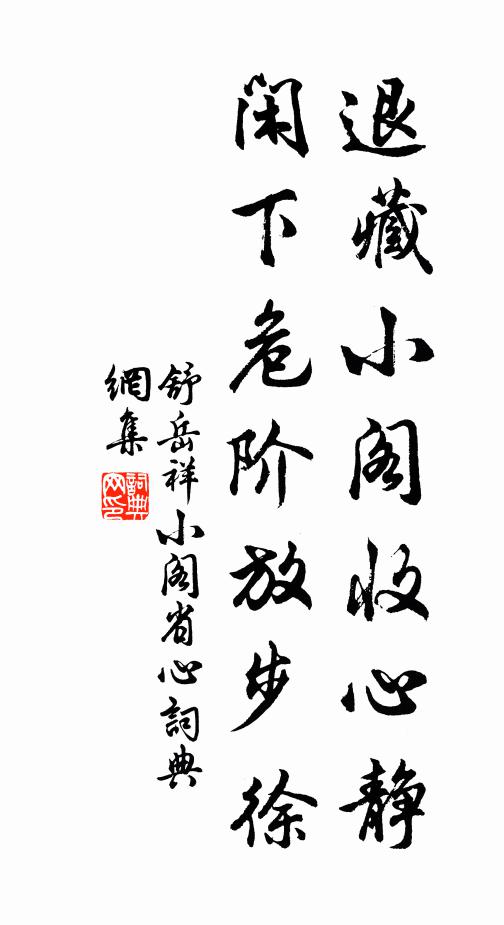 退藏小阁收心静
闲下危阶放步徐
舒岳祥小阁省心詞典
網集
詞典
网印